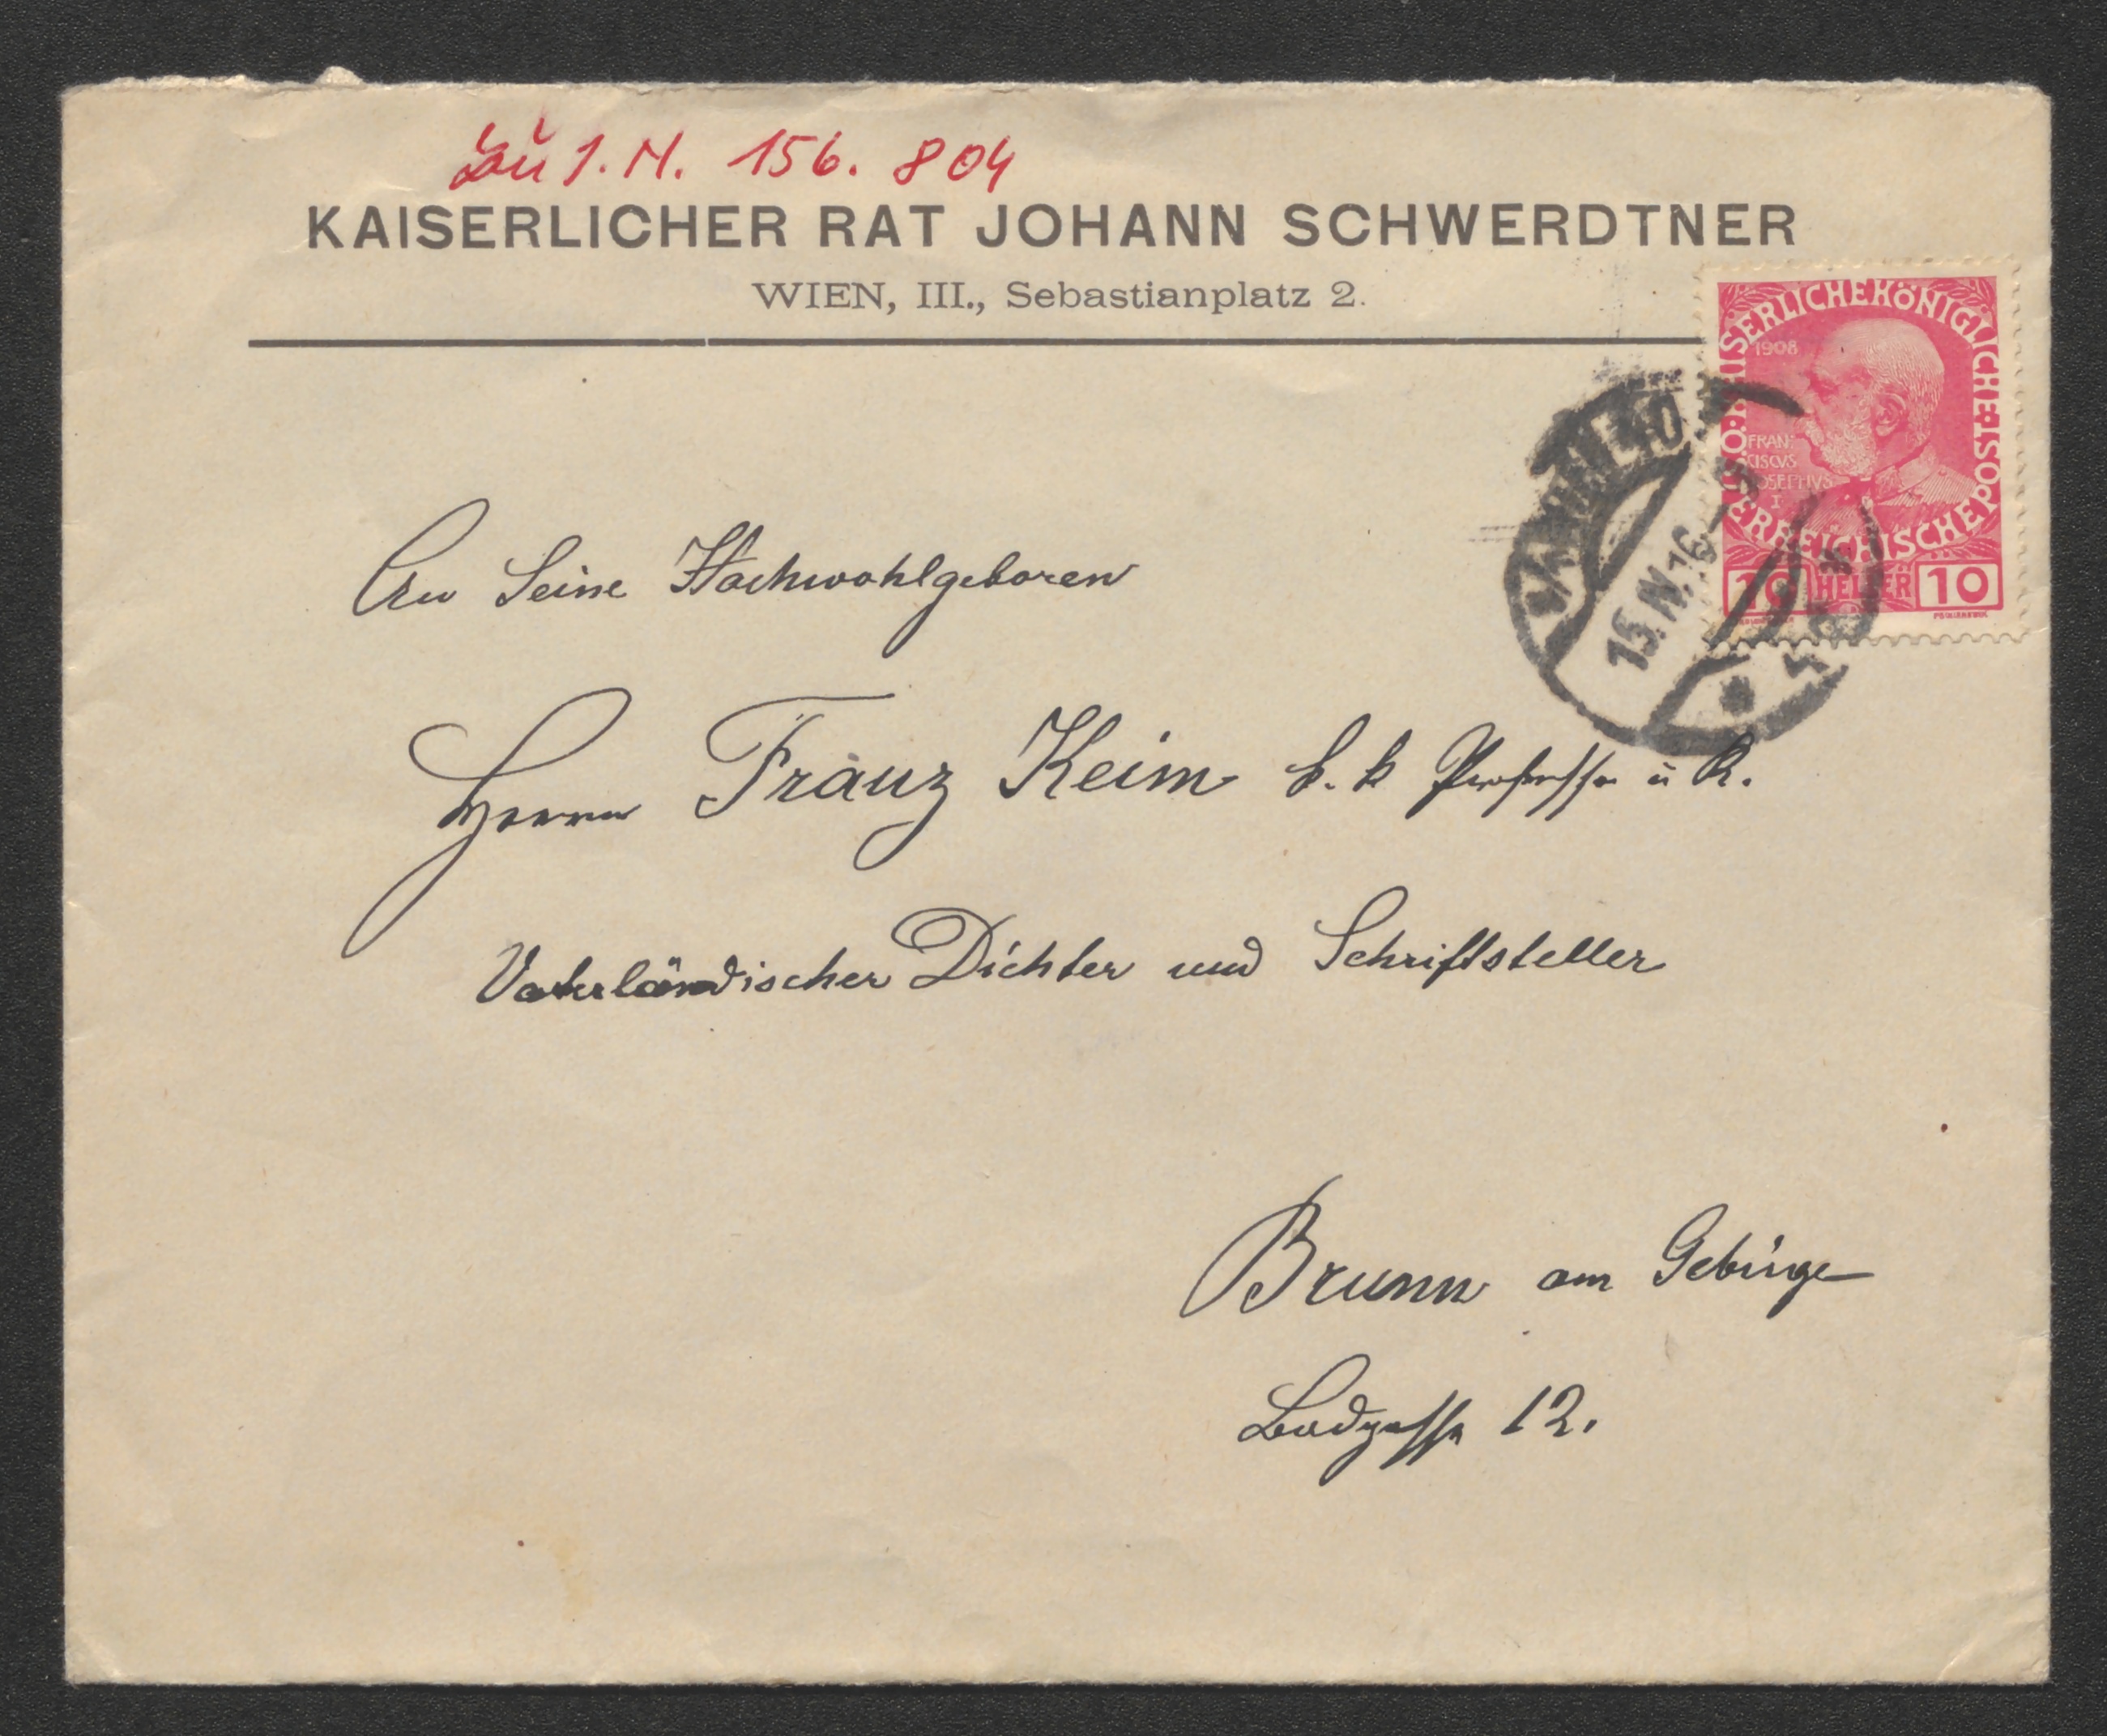 Zu I.N. 156.804
KAISERLICHER RAT JOHANN SCHWERDTNER
WIEN, III., Sebastianplatz 2.
KAISERLICHE KÖNIGLICHE ÖSTERREICHISCHE POST
1908
FRAN
CISCVS
JOSEPHVS
I
10 HELLER 10
15.IV.16
An Seine Hochwohlgeboren
Herrn Franz Keim k. k Professor u R.
Vaterländischer Dichter und Schriftsteller
Brunn am Gebirge
Badgasse 12.